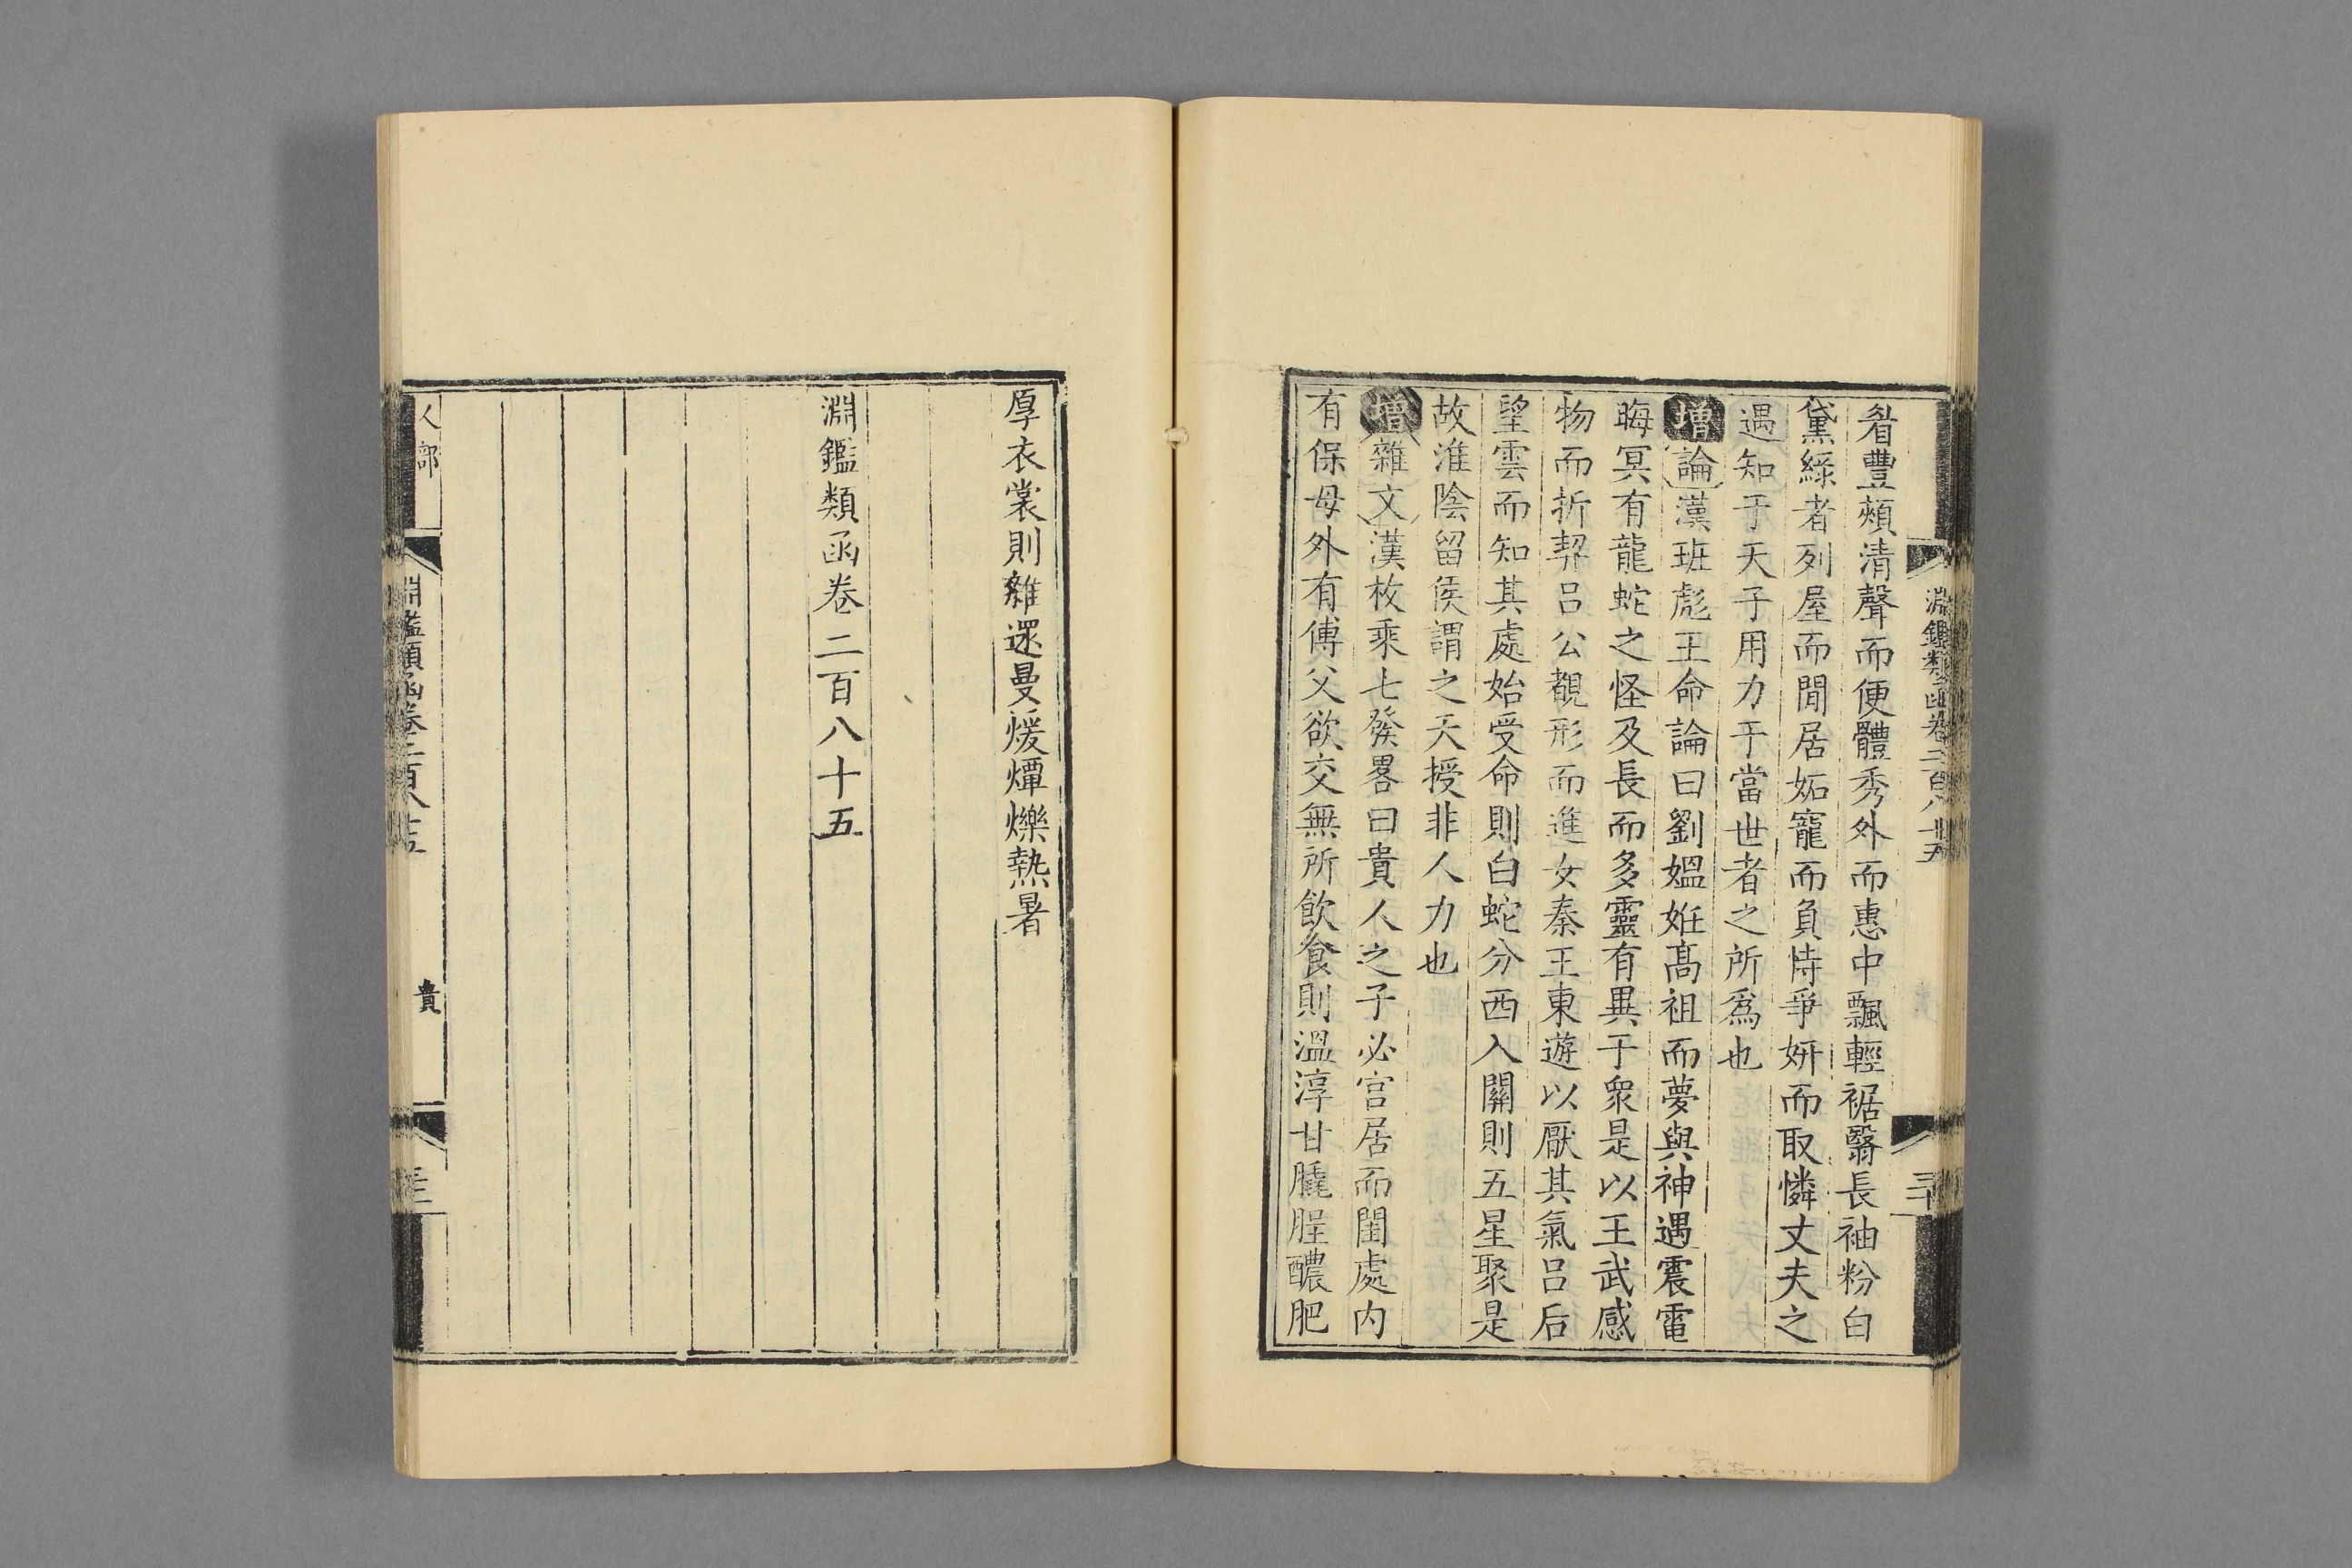 淵鑑類函卷二百八十五
三十
眉豐頰清聲而便體秀外而惠中飄輕裾翳長袖粉白
黛綠者列屋而閒居妬寵而負恃爭妍而取憐丈夫之
遇知于天子用力于當世者之所爲也
增論漢班彪王命論曰劉媼姙髙祖而夢與神遇震電
晦冥有龍蛇之怪及長而多靈有異于衆是以王武感
物而折契吕公覩形而進女秦王東遊以厭其氣吕后
望雲而知其處始受命則白蛇分西入關則五星聚是
故淮陰留侯謂之天授非人力也
增雜文漢枚乘七發畧曰貴人之子必宫居而閨處内
有保母外有傅父欲交無所飲食則溫淳甘膬脭醲肥
厚衣裳則雜遝曼煖燂爍熱暑
淵鑑類函卷二百八十五
人部
淵鑑類函卷二百八十五
貴